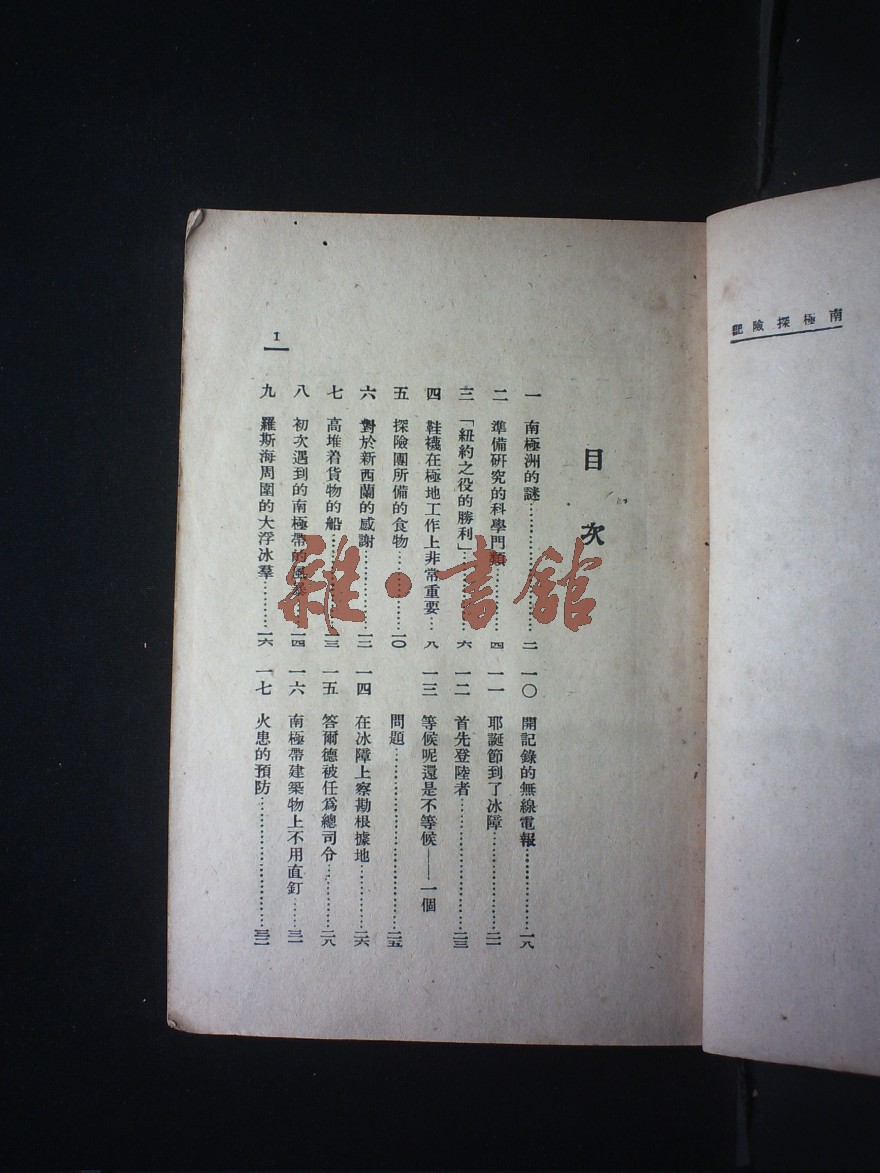 南極探險記
目次
一 南極洲的謎……二
二 準備研究的科學門類……四
三 「紐約之役的勝利」……六
四 鞋襪在極地工作上非常重要…八
五 探險團所備的食物……一〇
六 對於新西蘭的感謝……一二
七 高堆着貨物的船……一三
八 初次遇到的南極帶的風暴……一四
九 羅斯海周圍的大浮冰羣……一六
一〇 開記錄的無線電報……一八
一一 耶誕節到了冰障……二一
一二 首先登陸者……二三
一三 等候呢還是不等候——一個
問題……二五
一四 在冰障上察勘根據地……二六
一五 答爾德被任爲總司令……二八
一六 南極帶建築物上不用直釘……三一
一七 火患的預防……三二
1
雜·書館